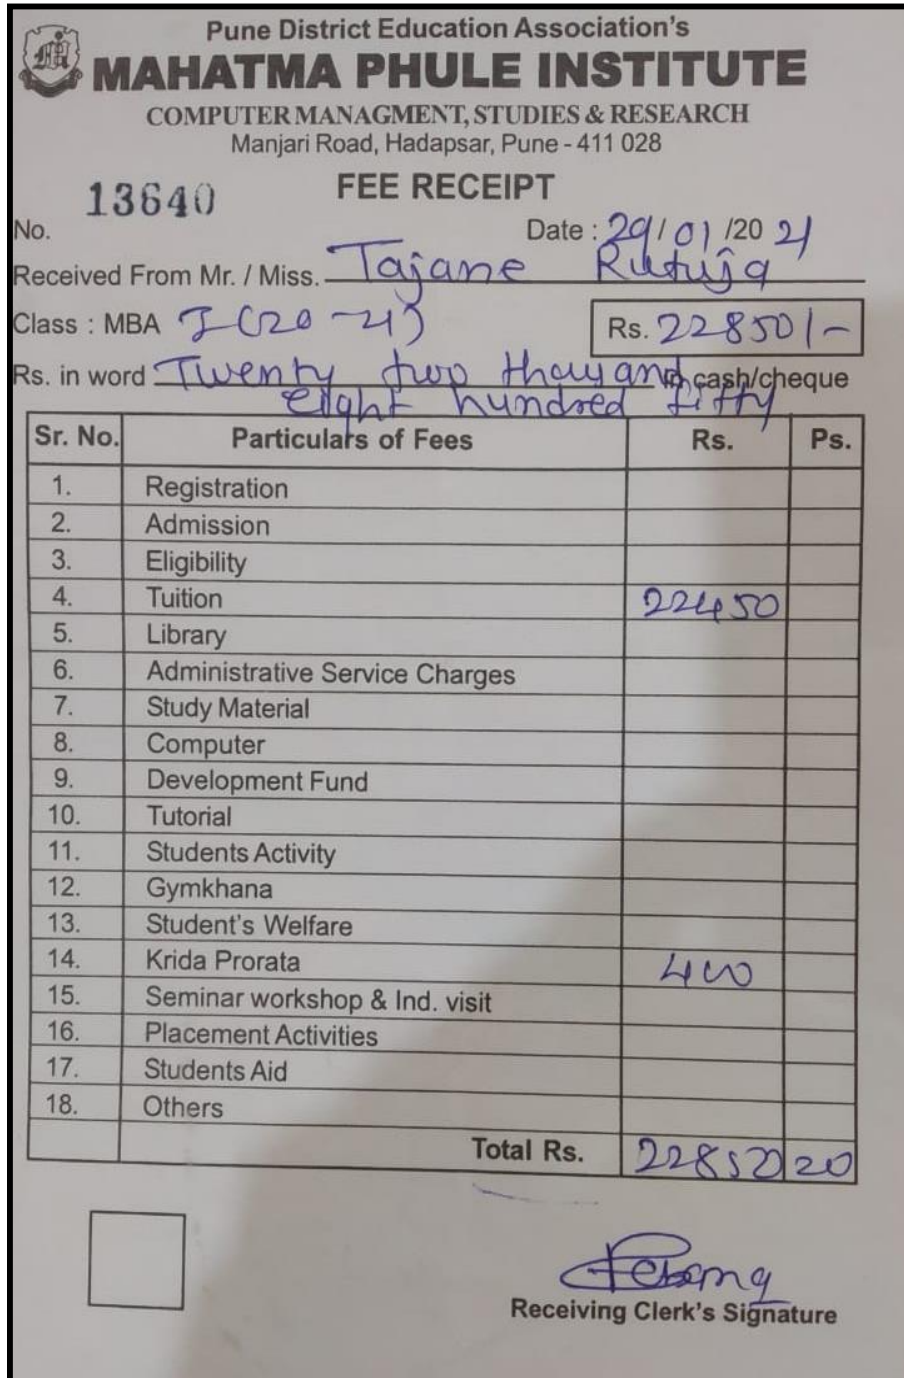 Pune District Education Association's
MAHATMA PHULE INSTITUTE
COMPUTER MANAGMENT, STUDIES & RESEARCH
Manjari Road, Hadapsar, Pune - 411 028
FEE RECEIPT
No. 13640
Date : 29/01/2021
Received From Mr. / Miss. Tajane Rutuja
Class : MBA I (20-21) Rs. 22850/-
Rs. in word Twenty two thousand in cash/cheque
eight hundred fifty
Sr. No. Particulars of Fees Rs. Ps.
1. Registration
2. Admission
3. Eligibility
4. Tuition 22450
5. Library
6. Administrative Service Charges
7. Study Material
8. Computer
9. Development Fund
10. Tutorial
11. Students Activity
12. Gymkhana
13. Student's Welfare
14. Krida Prorata 400
15. Seminar workshop & Ind. visit
16. Placement Activities
17. Students Aid
18. Others
Total Rs. 22850
Receiving Clerk's Signature